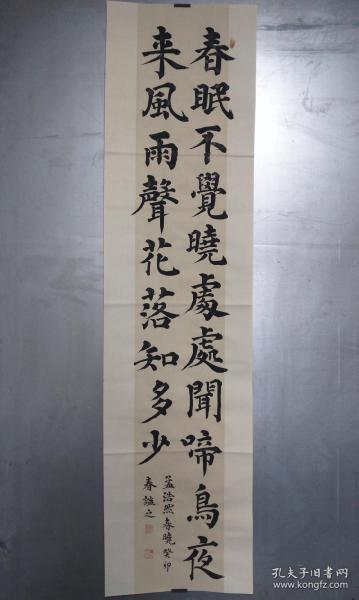 春眠不覺曉處處聞啼鳥夜
来風雨聲花落知多少
孟浩然春曉癸卯
春謐之
孔夫子旧书网